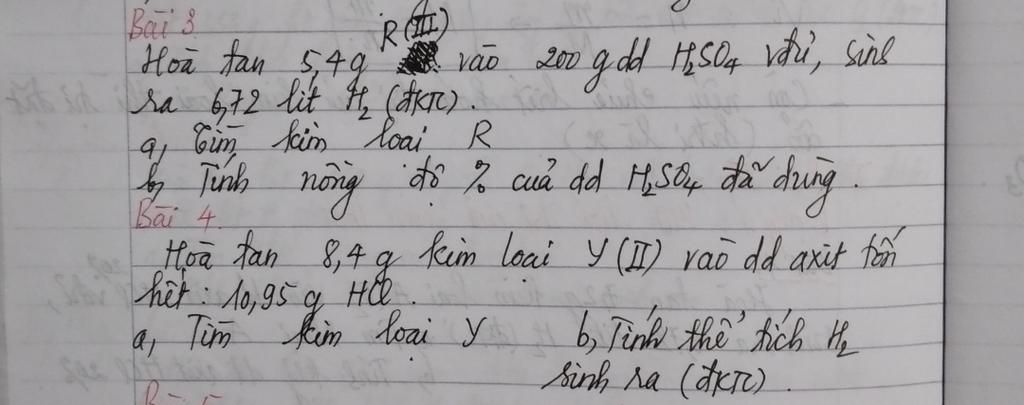 Bài 3.
R (III)
Hoà tan 5,4g vào 200 g dd H₂SO₄ vđủ, sinh
ra 6,72 lít H₂ (đktc).
a, Tìm kim loại R
b, Tính nồng độ % của dd H₂SO₄ đã dùng.
Bài 4.
Hoà tan 8,4 g kim loại Y (II) vào dd axit tốn
hết: 10,95 g HCl.
a, Tìm kim loại Y b, Tính thể tích H₂
sinh ra (đktc).